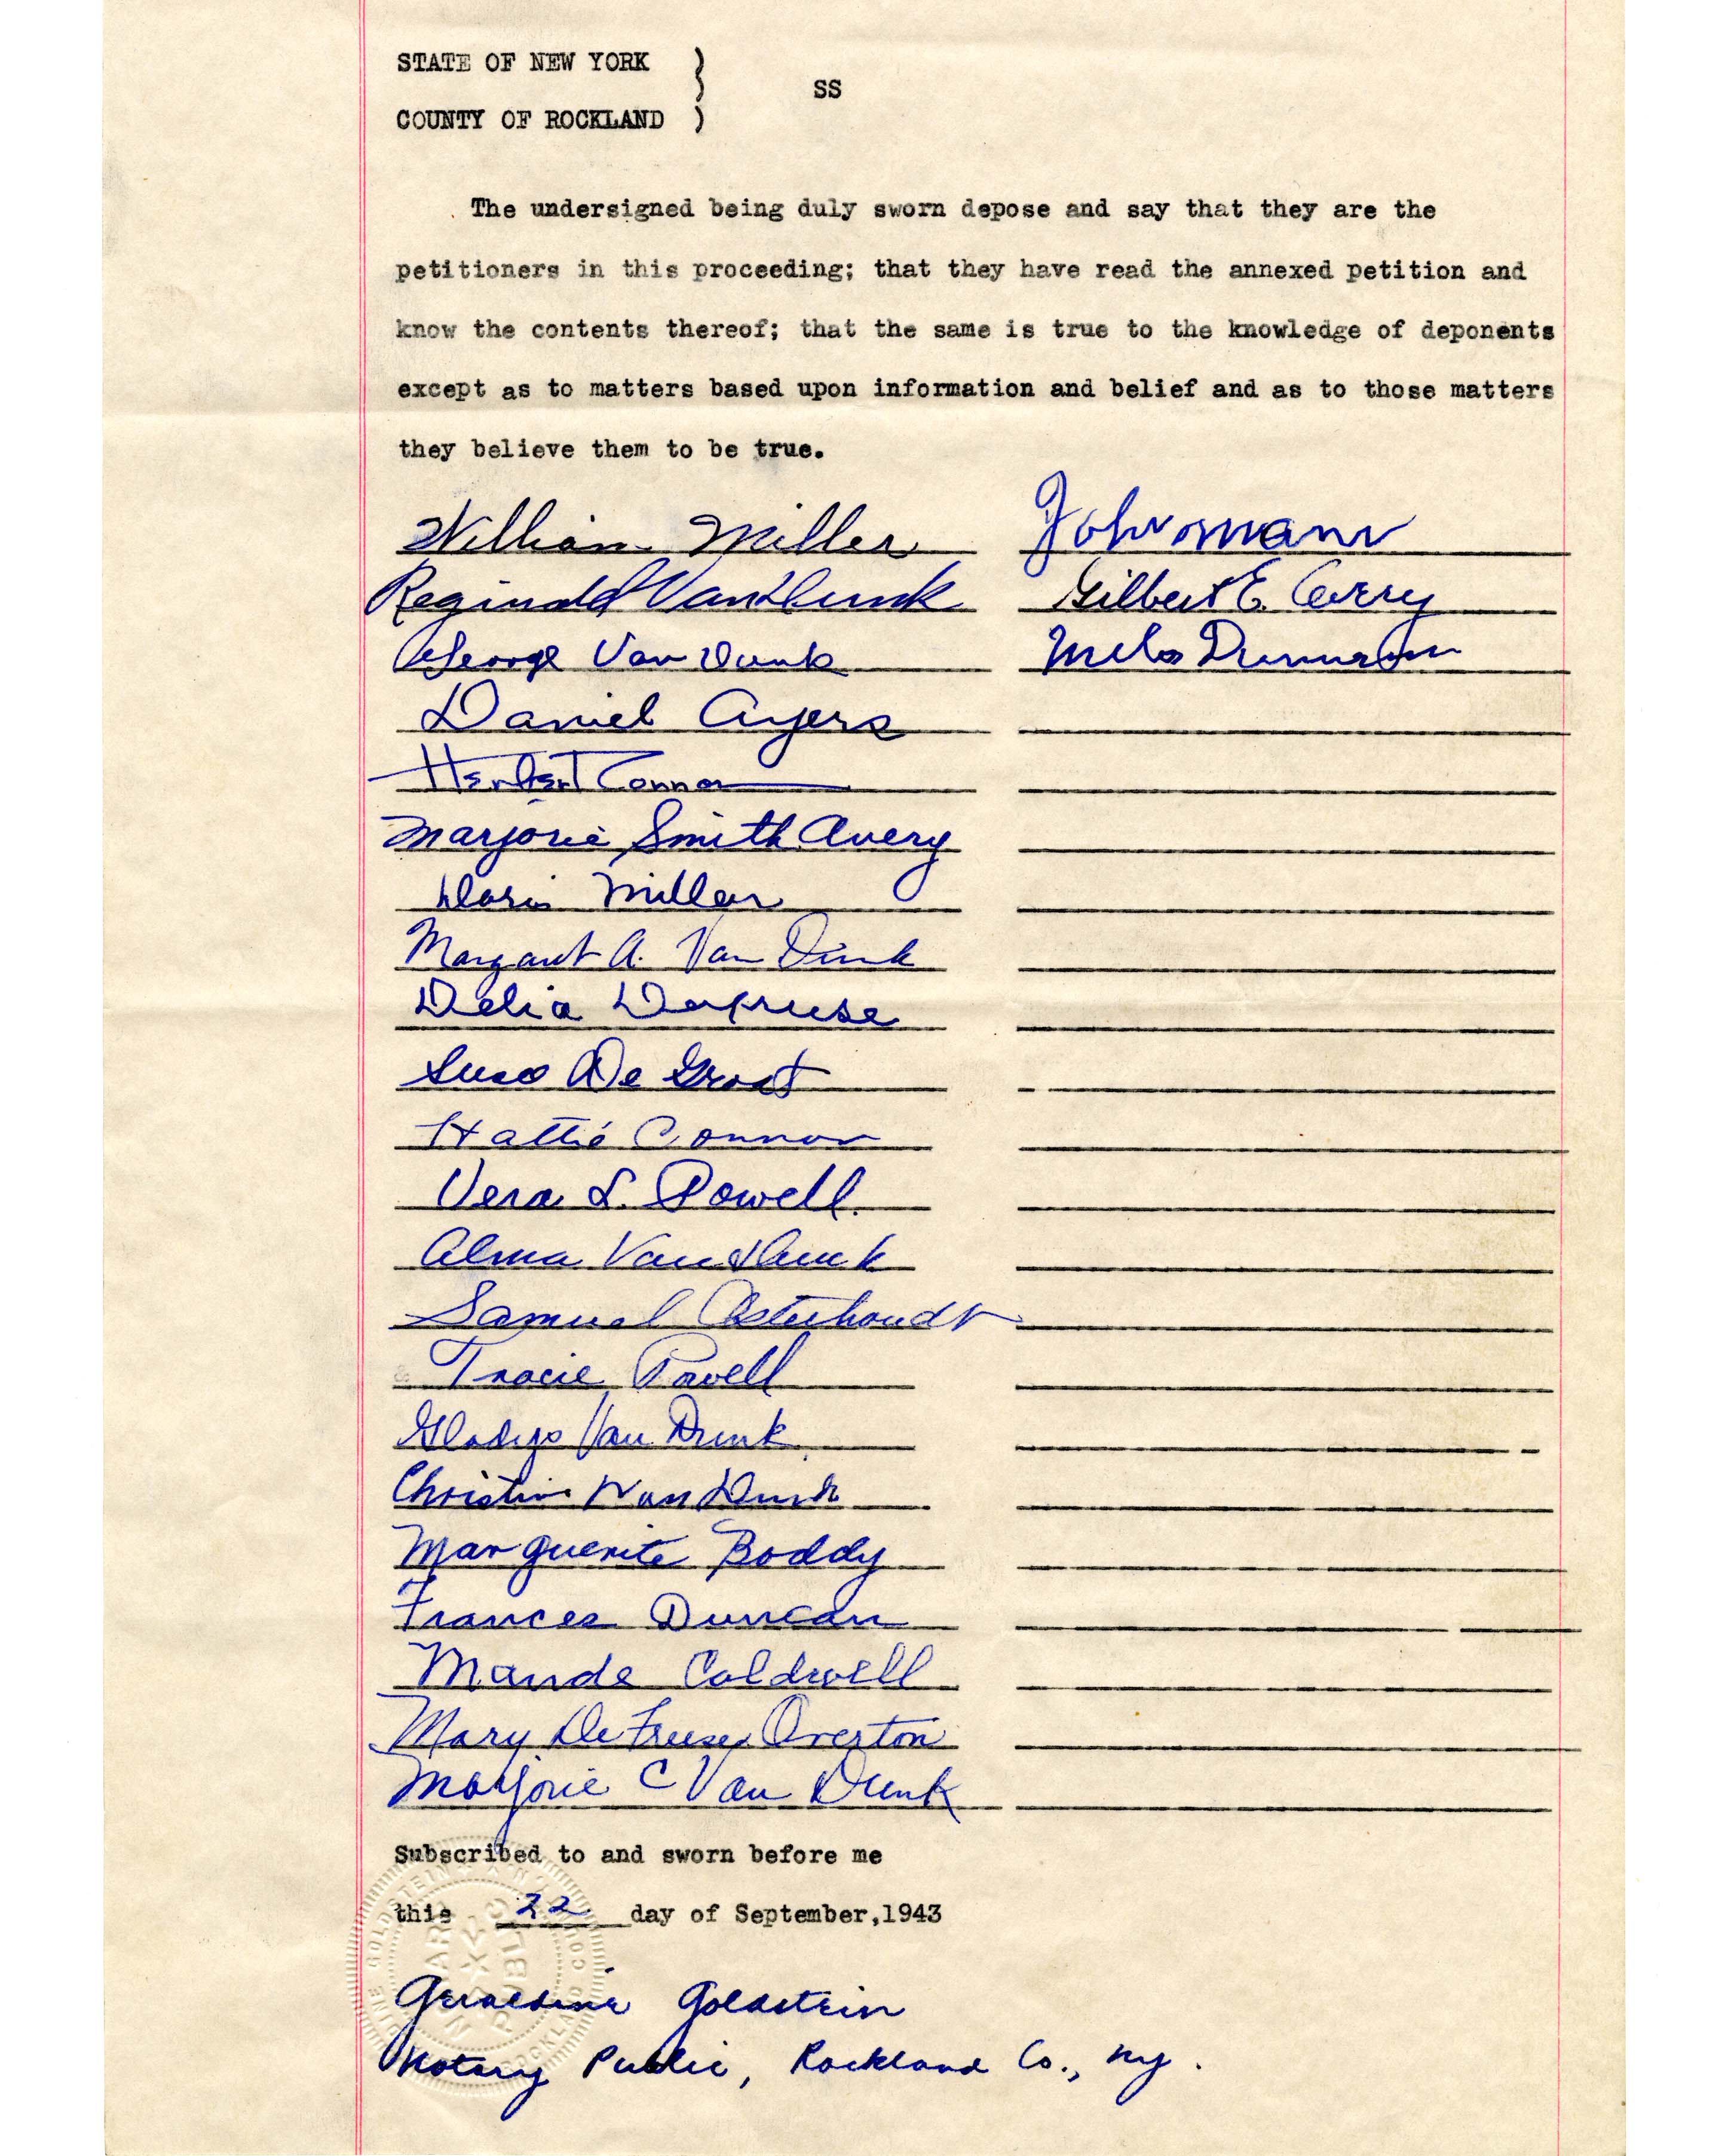 STATE OF NEW YORK }
SS
COUNTY OF ROCKLAND )
The undersigned being duly sworn depose and say that they are the
petitioners in this proceeding; that they have read the annexed petition and
know the contents thereof; that the same is true to the knowledge of deponents
except as to matters based upon information and belief and as to those matters
they believe them to be true.
William Miller
Reginald VanDunk
George Van Dunk
Daniel Ayers
Herbert Connor
Marjorie Smith Avery
Doris Miller
Margaret A. Van Dunk
Delia Defreese
De Groat
Hattie Connor
Vera L. Powell
Alma VanDunk
Samuel Osterhoudt
Tracie Powell
Gladys Van Dunk
Christine Van Dunk
Marguerite Boddy
Frances Duncan
Maude Caldwell
Mary DeFreese Overton
Marjorie C Van Dunk
John mann
Gilbert E.
Subscribed to and sworn before me
this 22 day of September,1943
Geraldine Goldstein
Notary Public, Rockland Co., NY.